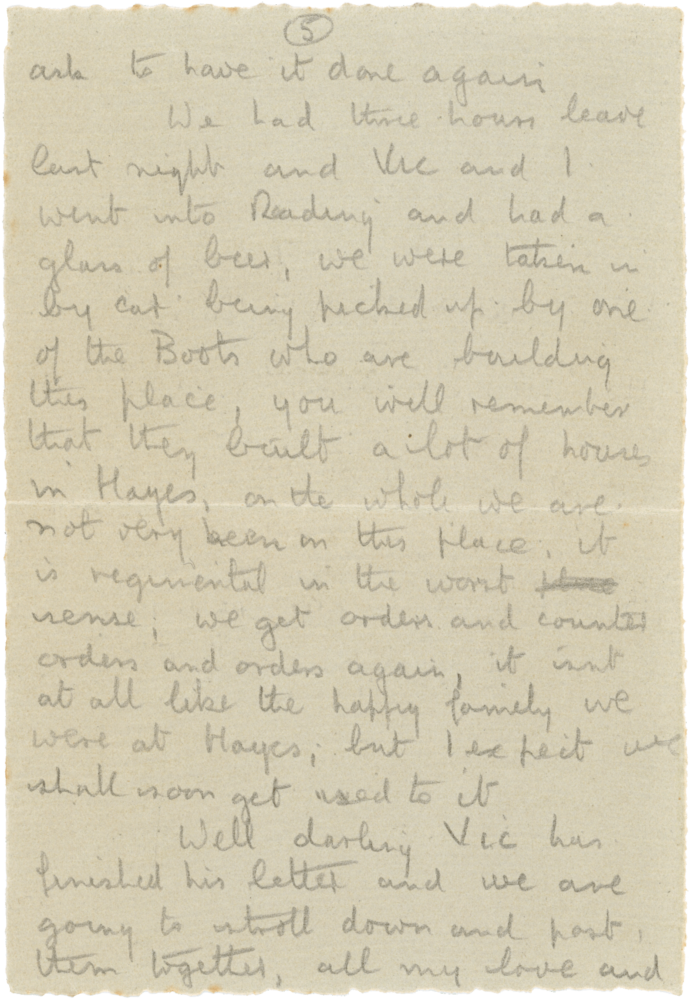 5
ask to have it done again
We had three hours leave
last night and Vic and I
went into Reading and had a
glass of beer, we were taken in
by car being picked up by one
of the Boots who are building
this place, you will remember
that they built a lot of houses
in Hayes, on the whole we are
not very keen on this place, it
is regimental in the worst place
sense; we get orders and counter
orders and orders again, it isnt
at all like the happy family we
were at Hayes; but I expect we
shall soon get used to it
Well darling Vic has
finished his letter and we are
going to stroll down and post
them together, all my love and